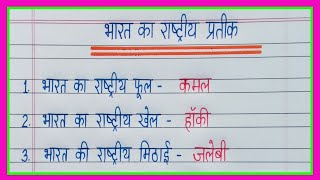 भारत का राष्ट्रीय प्रतीक
1. भारत का राष्ट्रीय फूल - कमल
2. भारत का राष्ट्रीय खेल - हॉकी
3. भारत की राष्ट्रीय मिठाई - जलेबी